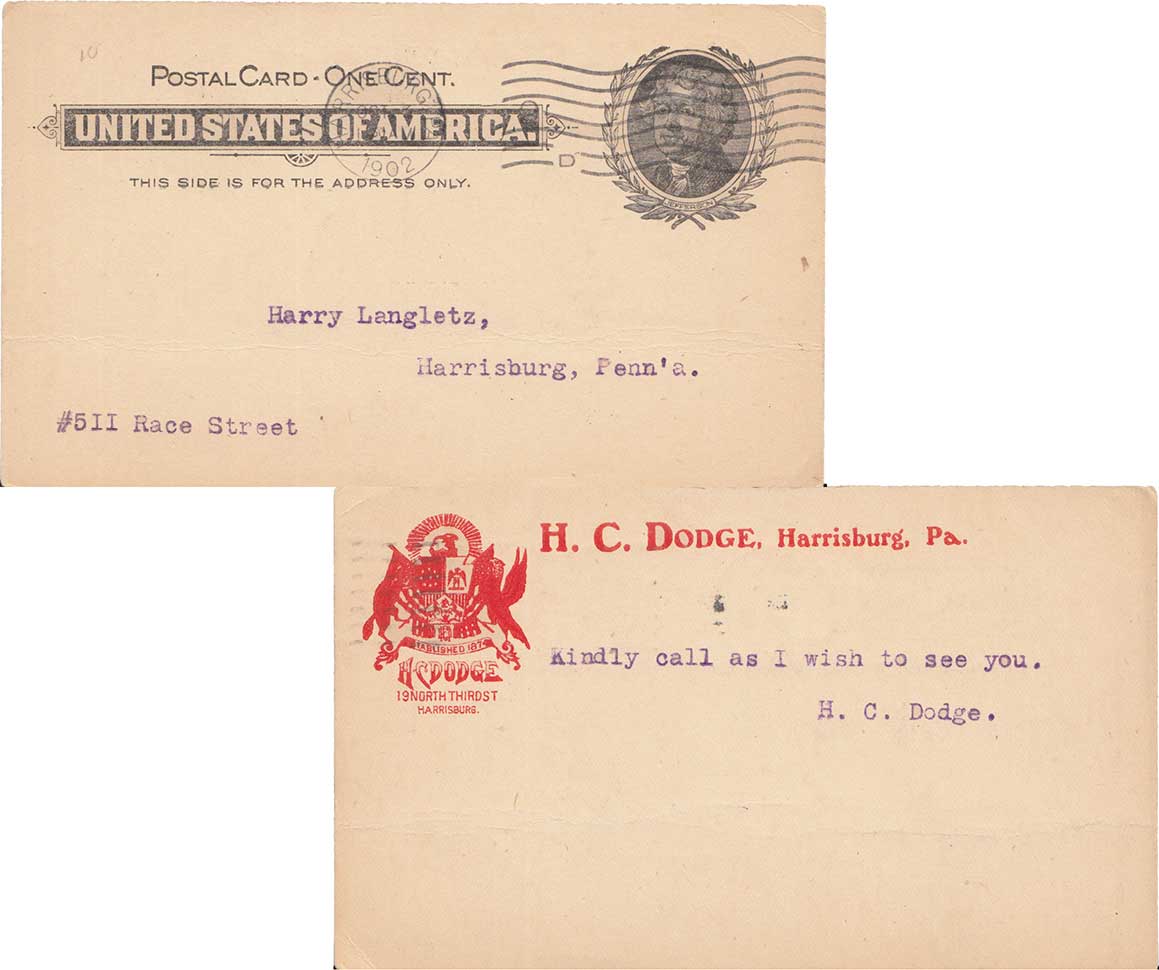 POSTAL CARD - ONE CENT.
UNITED STATES OF AMERICA.
THIS SIDE IS FOR THE ADDRESS ONLY.
HARRISBURG
1902
D
JEFFERSON
Harry Langletz,
Harrisburg, Penn'a.
#5II Race Street
H. C. DODGE, Harrisburg, Pa.
H.C. DODGE
19 NORTH THIRD ST
HARRISBURG.
Kindly call as I wish to see you.
H. C. Dodge.